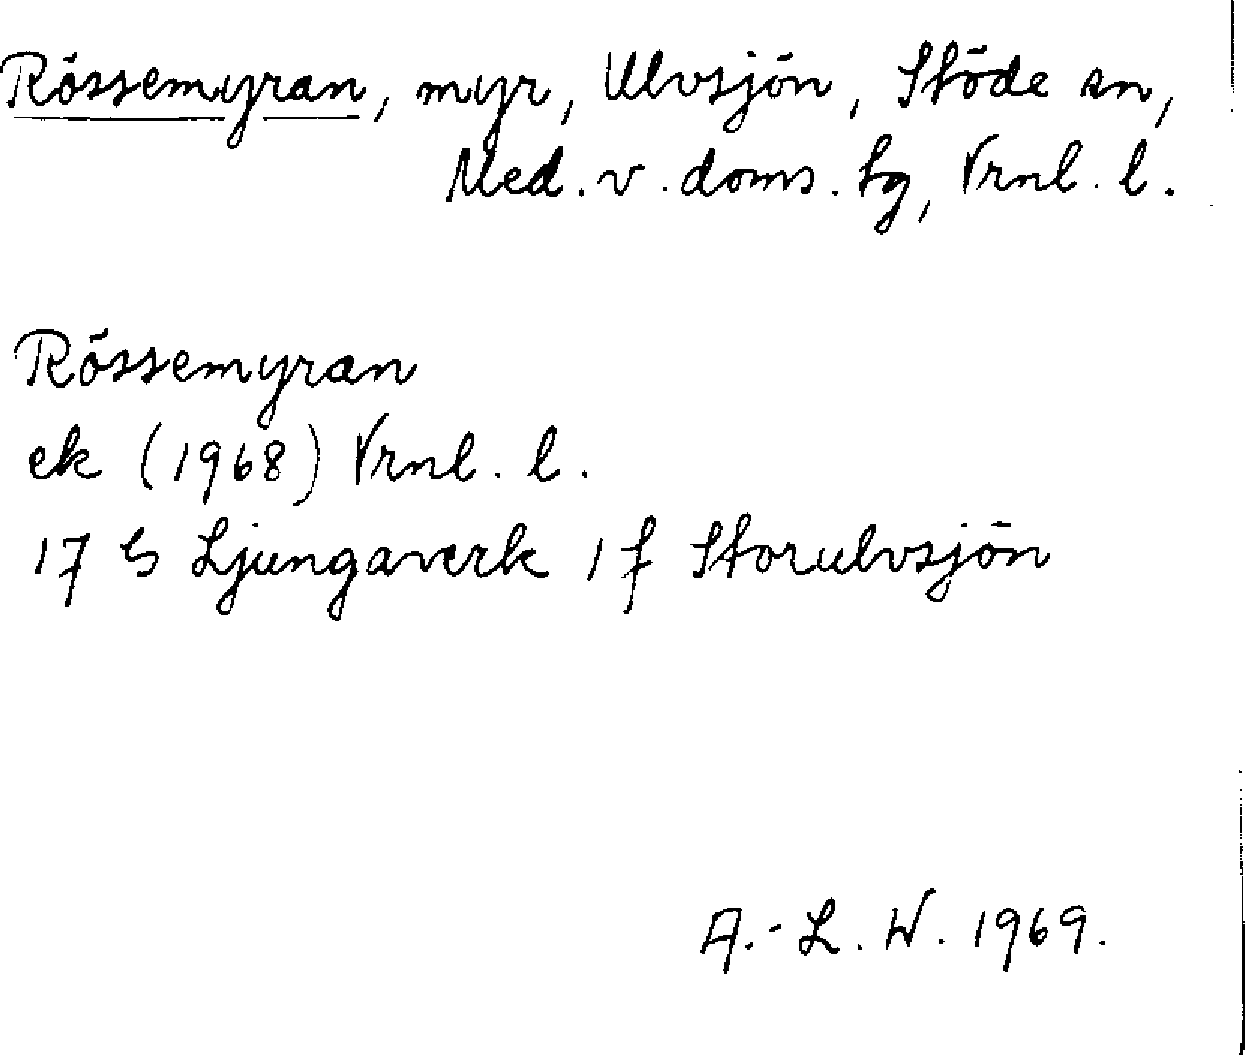 Rössemyran, myr, Ulvsjön, Stöde sn,
Med. v. doms. tg, Vrnl. l.
Rössemyran
ek (1968) Vrnl. l.
17 G Ljungaverk 1 f Storulvsjön
A.-L. W. 1969.